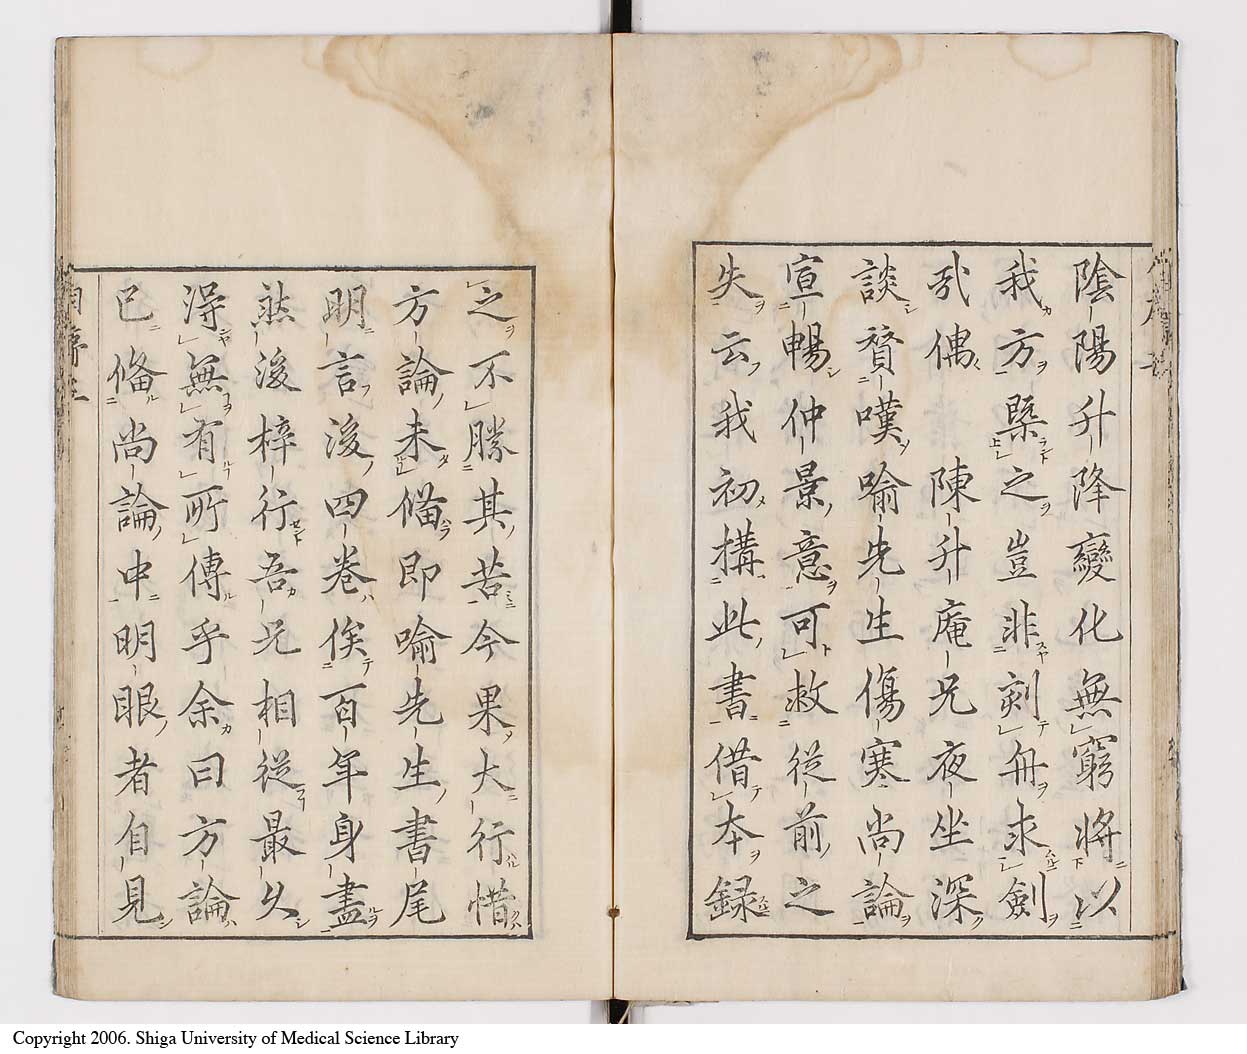 陰陽升降變化無窮將以
我方槩之豈非刻舟求劍
哉偶　陳升庵兄夜坐深
談賛嘆喻先生傷寒尚論
宣暢仲景意可救從前之
失云我初搆此書借本録
之不勝其苦今果大行惜
方論未備即喻先生書尾
明言後四卷俟百年身盡
然後梓行吾兄相從最久
得無有所傳乎余曰方論
已備尚論中明眼者自見
Copyright 2006. Shiga University of Medical Science Library